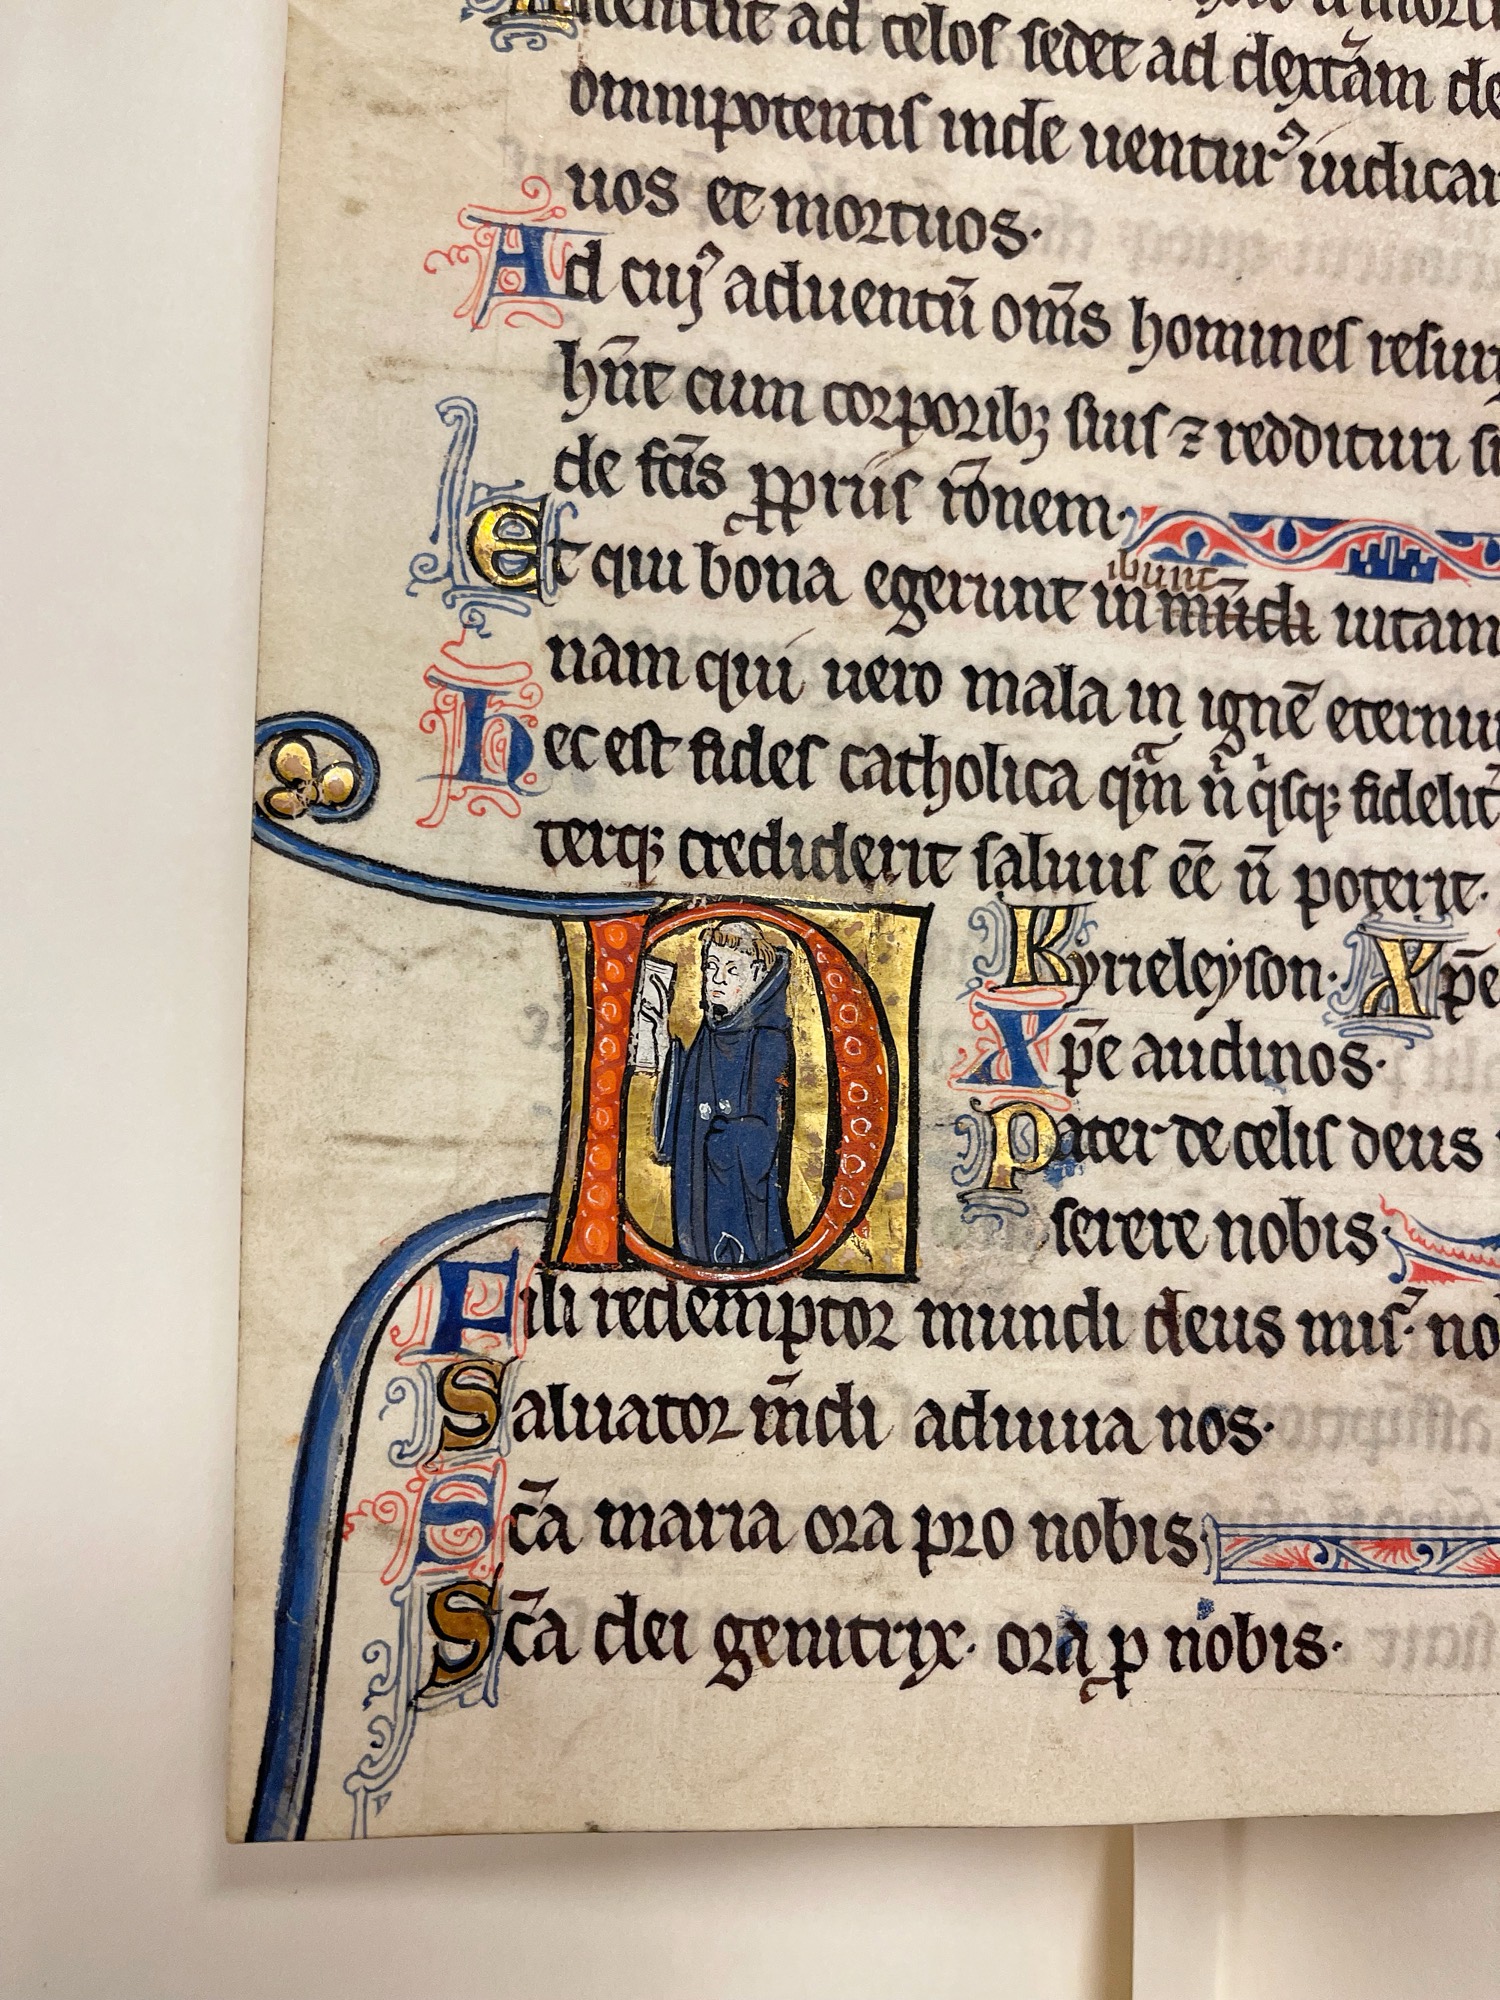 ad celos sedet ad dext̄am de
omnipotentis inde uentur᾽ iudicar
uos et mortuos·
Ad cuj᾽ aduentū om̄s homines resur
hn̄t cum corporibꝫ suis ⁊ reddituri
de fc̄is ꝓpriis rōnem·
Et qui bona egerunt ibunt in mūdi uitam
nam qui uero mala in ignē eternu
Hec est fides catholica qᵃm n̄ qⁱsqꝫ fidelit᾽
terqꝫ crediderit saluus ēe n̄ poterit·
Kyrieleyson· Xp̄e
Xp̄e audinos·
Pater de celis deus
serere nobis·
Fili redemptor mundi deus mis᾽· no
Saluator m̄di adiuua nos·
Sc̄a maria ora pro nobis·
Sc̄a dei genitrix· ora ꝓ nobis·